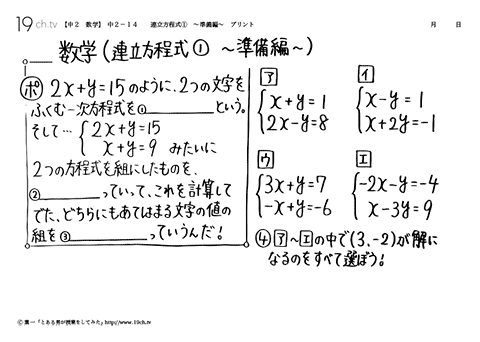 19ch.tv 【中2 数学】 中2-14 連立方程式① ~準備編~ プリント 月 日
数学(連立方程式① ~準備編~)
ポ 2x+y=15のように、2つの文字を
ふくむ一次方程式を①という。
そして…
2x+y=15
x+y=9 みたいに
2つの方程式を組にしたものを、
②っていって、これを計算して
でた、どちらにもあてはまる文字の値の
組を③っていうんだ!
ア
x+y=1
2x-y=8
イ
x-y=1
x+2y=-1
ウ
3x+y=7
-x+y=-6
エ
-2x-y=-4
x-3y=9
④ア~エの中で(3,-2)が解に
なるのをすべて選ぼう!
©葉一「とある男が授業をしてみた」http://www.19ch.tv